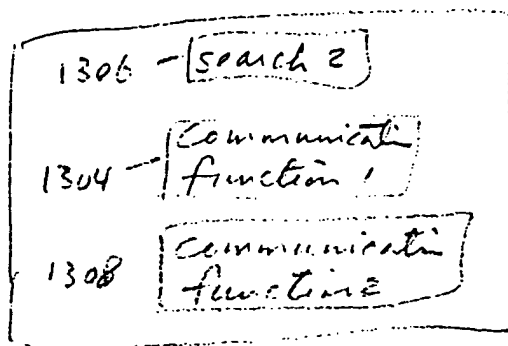 1306 search 2
1304 communicatin
function 1
1308 communicatin
function 2